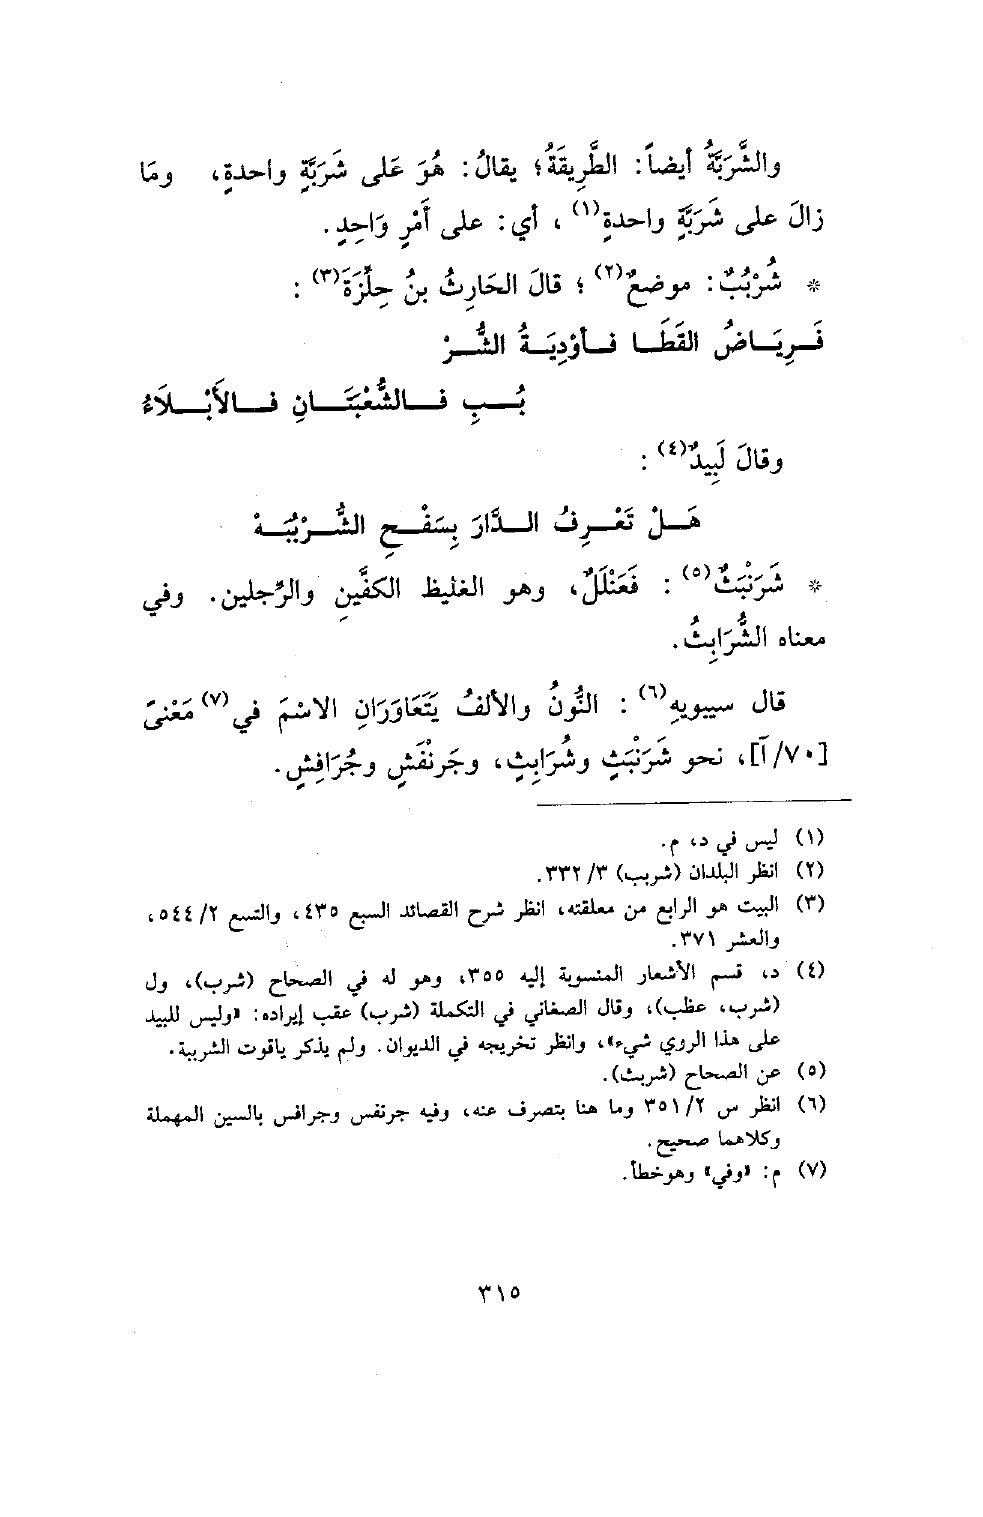 والشَّرَبَّةُ أيضاً: الطَّرِيقَةُ؛ يقالُ: هُوَ عَلى شَرَبَّةٍ واحدةٍ، ومَا
زالَ على شَرَبَّةٍ واحدةٍ(١)، أي: على أَمْرٍ وَاحِدٍ.
* شُرْبُبٌ: موضعٌ(٢)؛ قالَ الحَارِثُ بنُ حِلِّزَةَ(٣):
فَرِيَاضُ القَطَا فأوْدِيَةُ الشُّرْ
بُبِ فالشُّعْبَتَانِ فالأَبْلَاءُ
وقالَ لَبِيدٌ(٤):
هَلْ تَعْرِفُ الدَّارَ بِسَفْحِ الشُّرْبُبَهْ
* شَرَنْبَثٌ(٥): فَعَنْلَلٌ، وهو الغليظ الكفَّينِ والرِّجلين. وفي
معناه الشُّرَابِثُ.
قال سيبويهِ(٦): النُّونُ والألفُ يَتَعَاوَرَانِ الاسْمَ في(٧) مَعْنىً
[٧٠/آ]، نحو شَرَنْبَثٍ وشُرَابِثٍ، وجَرنْفَشٍ وجُرَافِشٍ.
(١) ليس في د، م.
(٢) انظر البلدان (شربب) ٣/ ٣٣٢.
(٣) البيت هو الرابع من معلقته، انظر شرح القصائد السبع ٤٣٥، والتسع ٢/ ٥٤٤،
والعشر ٣٧١.
(٤) د، قسم الأشعار المنسوبة إليه ٣٥٥، وهو له في الصحاح (شرب)، ول
(شرب، عظب)، وقال الصغاني في التكملة (شرب) عقب إيراده: «وليس للبيد
على هذا الروي شيء»، وانظر تخريجه في الديوان. ولم يذكر ياقوت الشربية.
(٥) عن الصحاح (شربث).
(٦) انظر س ٢/ ٣٥١ وما هنا بتصرف عنه، وفيه جرنفس وجرافس بالسين المهملة
وكلاهما صحيح.
(٧) م: «وفي» وهوخطأ.
٣١٥